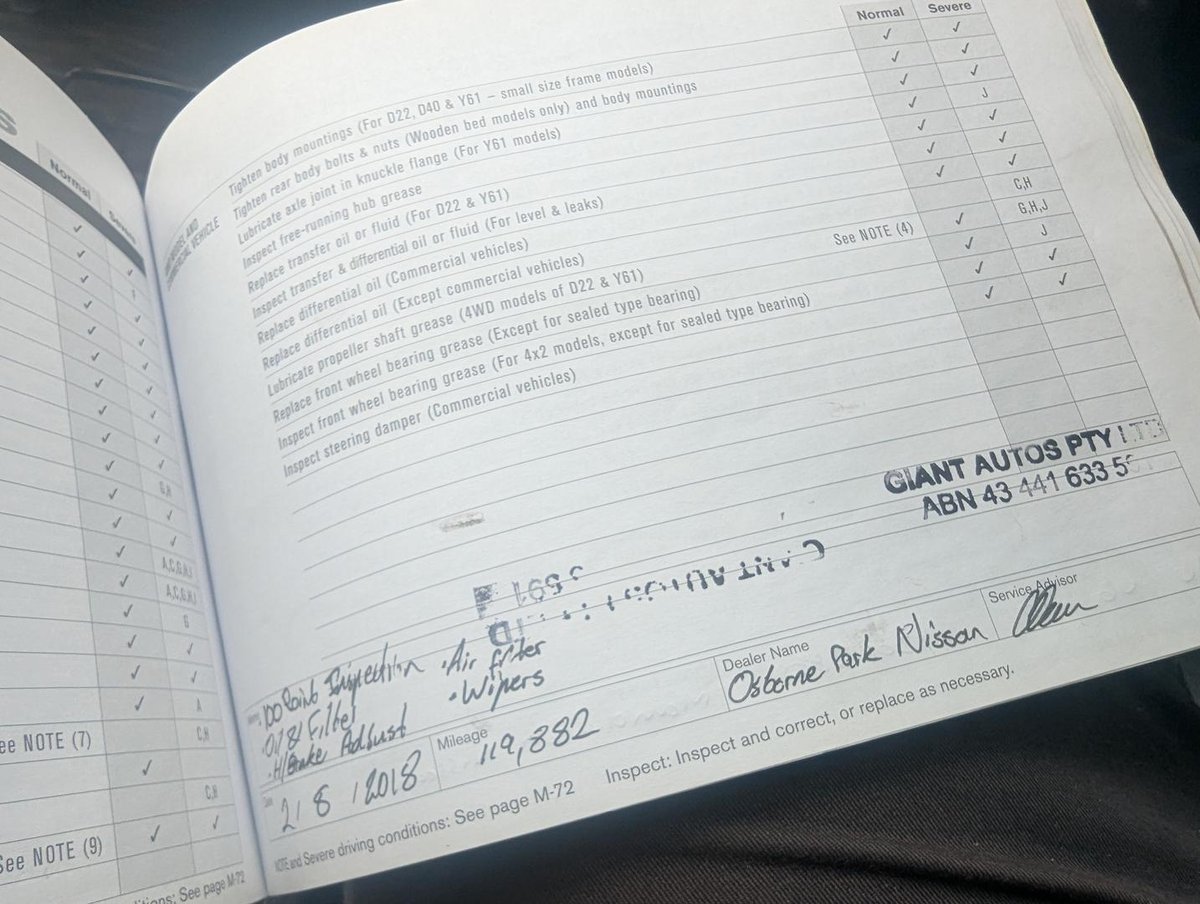 Normal
See NOTE (7)
See NOTE (9)
See page M-72
G,H
A,C,G,H,J
A,C,G,H,J
G
A
C,H
C,H
Normal Severe
Tighten body mountings (For D22, D40 & Y61 – small size frame models) ✓ ✓
Tighten rear body bolts & nuts (Wooden bed models only) and body mountings ✓ ✓
Lubricate axle joint in knuckle flange (For Y61 models) ✓ ✓
Inspect free-running hub grease ✓ J
Replace transfer oil or fluid (For D22 & Y61) ✓ ✓
Inspect transfer & differential oil or fluid (For level & leaks) ✓ ✓
Replace differential oil (Commercial vehicles) ✓ ✓
Replace differential oil (Except commercial vehicles) See NOTE (4) C,H
Lubricate propeller shaft grease (4WD models of D22 & Y61) ✓ G,H,J
Replace front wheel bearing grease (Except for sealed type bearing) ✓ J
Inspect front wheel bearing grease (For 4x2 models, except for sealed type bearing) ✓ ✓
Inspect steering damper (Commercial vehicles) ✓ ✓
GIANT AUTOS PTY LTD
ABN 43 441 633
100 Point Inspection • Air filter
Oil & Filter • Wipers
• H/Brake Adjust
2/8/2018
Mileage
119,882
Dealer Name
Osborne Park Nissan
Service Advisor
NOTE and Severe driving conditions: See page M-72 Inspect: Inspect and correct, or replace as necessary.